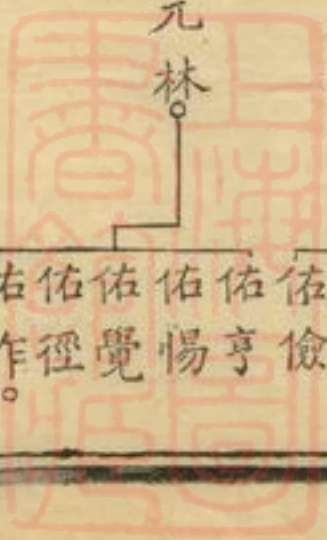 元林
佑儉
佑亨
佑惕
佑覺
佑徑
佑作